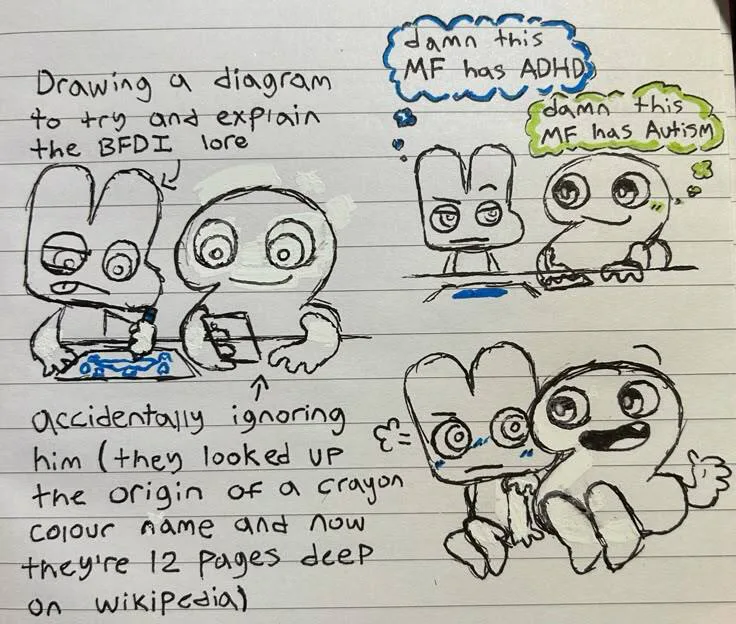 Drawing a diagram
to try and explain
the BFDI lore
damn this
MF has ADHD
damn this
MF has Autism
accidentally ignoring
him (they looked up
the origin of a crayon
colour name and now
they're 12 pages deep
on wikipedia)